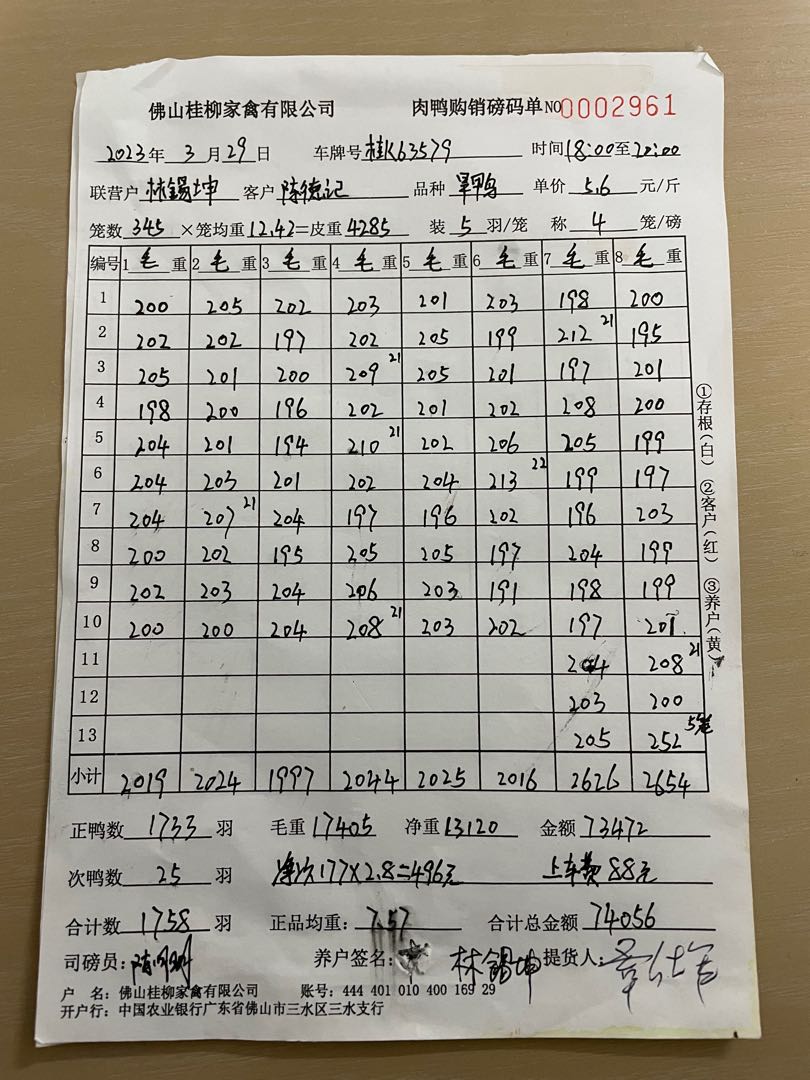 佛山桂柳家禽有限公司 肉鸭购销磅码单NO0002961
2023年 3月29日 车牌号 桂K63579 时间18:00至20:00
联营户 林錫坤 客户 陈德记 品种 单价 5.6 元/斤
笼数 345 ×笼均重12.42=皮重4285 装 5 羽/笼 称 4 笼/磅
编号 1毛重 2毛重 3毛重 4毛重 5毛重 6毛重 7毛重 8毛重
1 200 205 202 203 201 203 198 200
2 202 202 197 202 205 199 212 21 195
3 205 201 200 209 21 205 201 197 201
4 198 200 196 202 201 202 208 200
5 204 201 194 210 21 202 206 205 199
6 204 203 201 202 204 213 22 199 197
7 204 207 21 204 197 196 202 196 203
8 200 202 195 205 205 197 204 199
9 202 203 204 206 203 191 198 199
10 200 200 204 208 21 203 202 197 201
11 204 208 21
12 203 200
13 205 252 5笼
小计 2019 2024 1997 2044 2025 2016 2626 2654
①存根(白) ②客户(红) ③养户(黄)
正鸭数 1733 羽 毛重17405 净重13120 金额73472
次鸭数 25 羽 净次177×2.8=496元 上车费88元
合计数 1758 羽 正品均重: 7.57 合计总金额 74056
司磅员: 养户签名: 林錫坤 提货人:
户 名: 佛山桂柳家禽有限公司 账号: 444 401 010 400 169 29
开户行: 中国农业银行广东省佛山市三水区三水支行